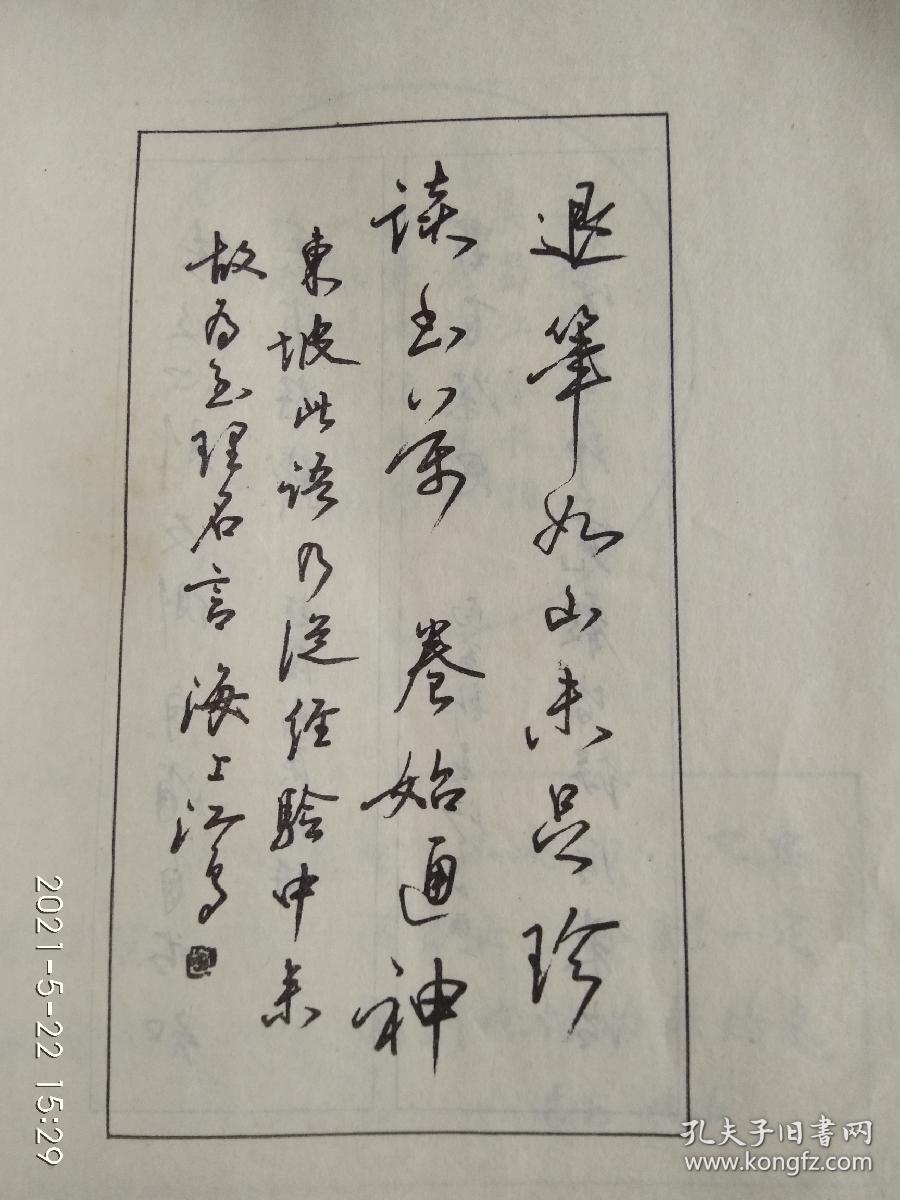 退筆如山未足珍
读书万卷始通神
東坡此语乃從经验中来
故为至理名言 海上江鸟
2021-5-22 15:29
孔夫子旧書网
www.kongfz.com